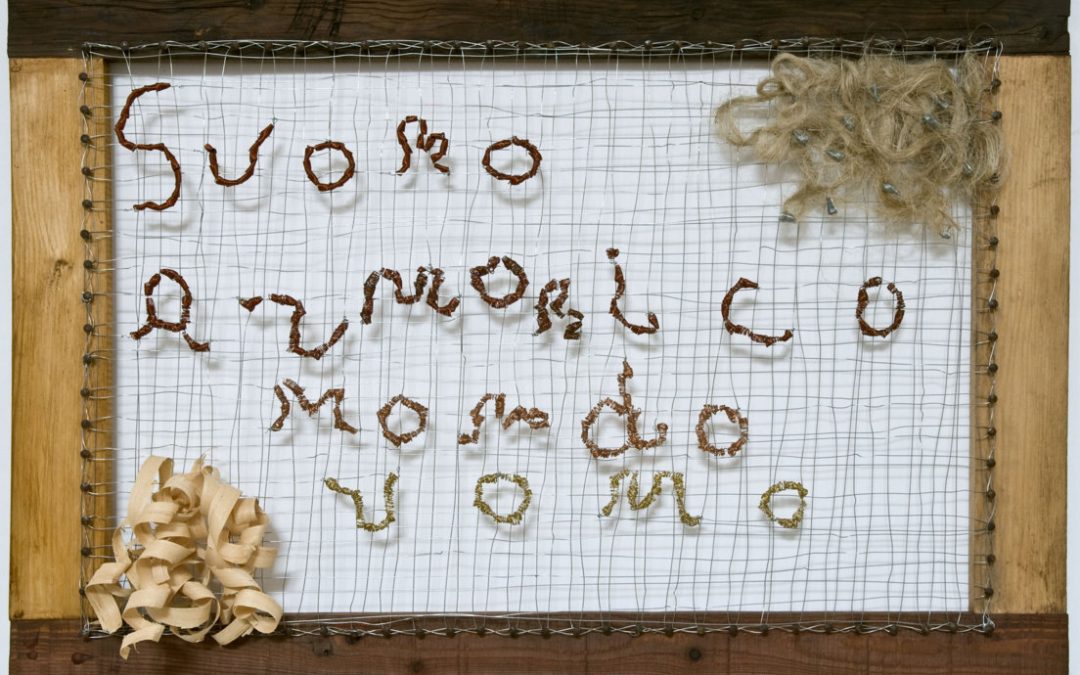 Suono
armonico
mondo
uomo